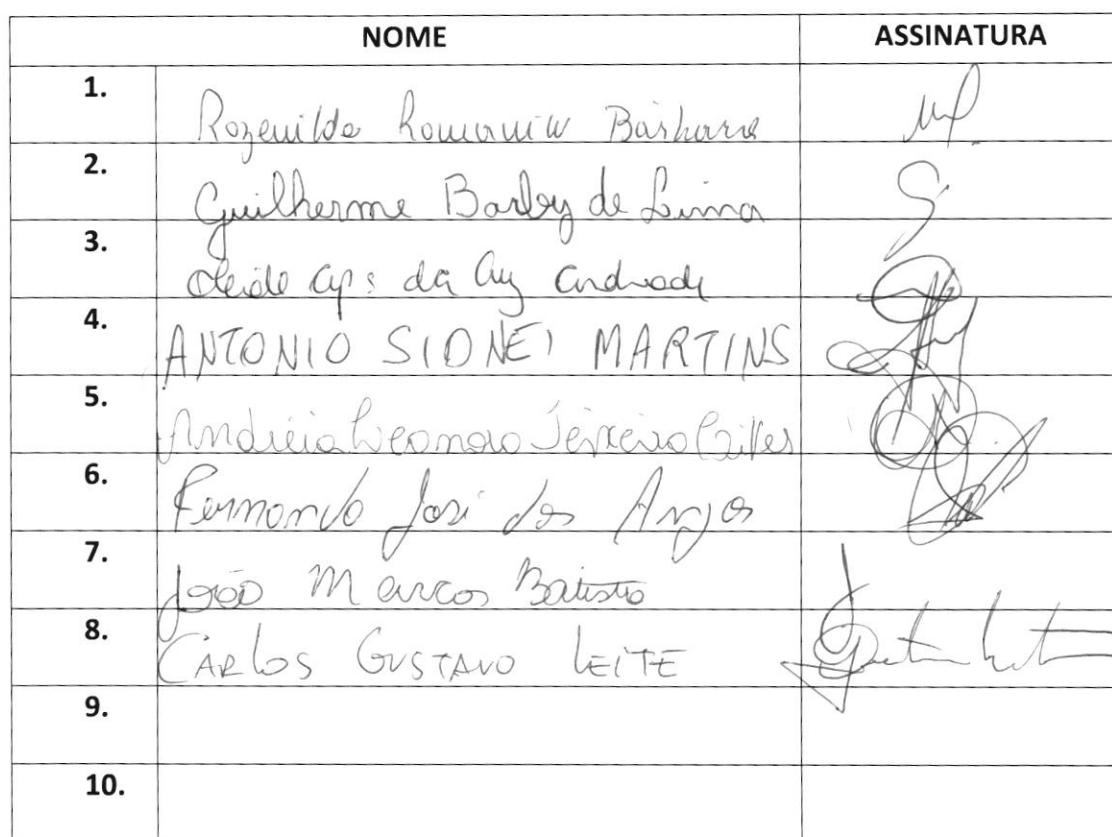 NOME ASSINATURA
1. Rozenilda Romaniw Bárbara
2. Guilherme Barby de Lima
3. Cleide Ap: da Cruz Andrade
4. ANTONIO SIDNEI MARTINS
5. Andréia Leonora Teixeira
6. Fernando José dos Anjos
7. João Marcos Batista
8. CARLOS GUSTAVO LEITE
9.
10.